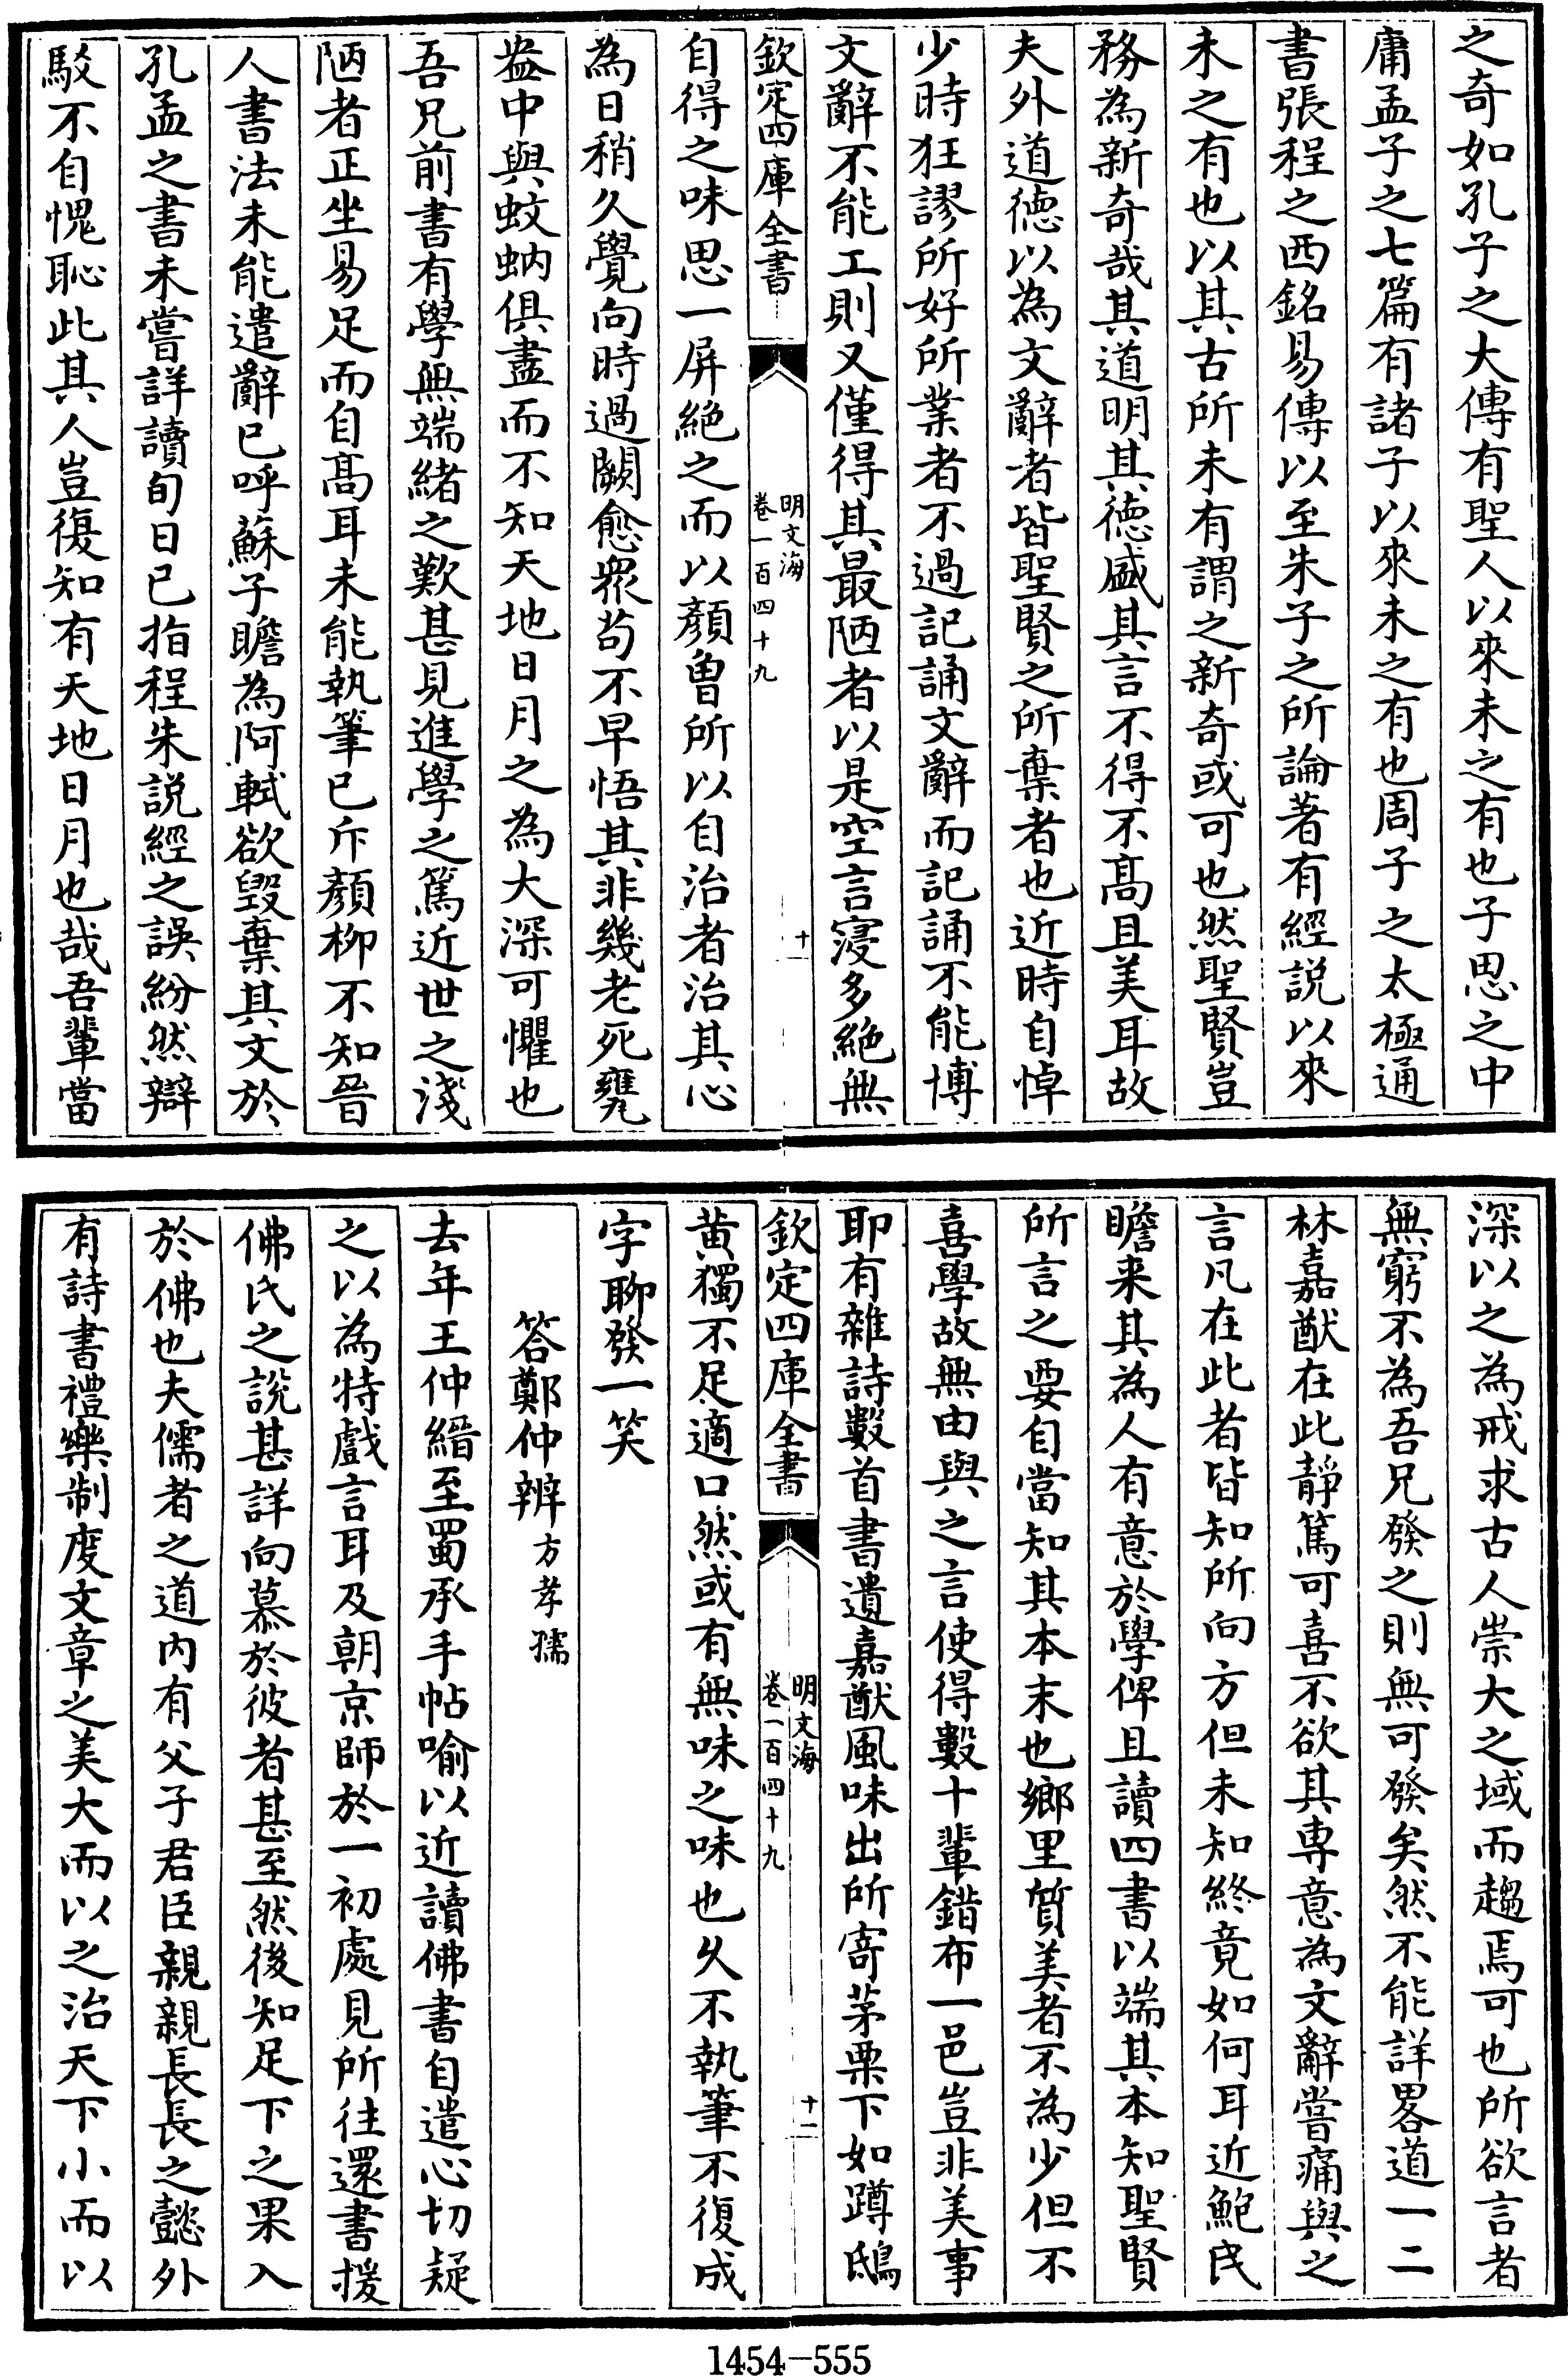 之奇如孔子之大傳有聖人以來未之有也子思之中
庸孟子之七篇有諸子以來未之有也周子之太極通
書張程之西銘易傳以至朱子之所論著有經説以來
未之有也以其古所未有謂之新奇或可也然聖賢豈
務為新奇哉其道明其德盛其言不得不髙且美耳故
夫外道德以為文辭者皆聖賢之所棄者也近時自悼
少時狂謬所好所業者不過記誦文辭而記誦不能博
文辭不能工則又僅得其最陋者以是空言寖多絶無
欽定四庫全書
明文海
卷一百四十九
十
自得之味思一屏絶之而以顔曽所以自治者治其心
為日稍久覺向時過闕愈衆茍不早悟其非幾老死甕
盎中與蚊蚋俱盡而不知天地日月之為大深可懼也
吾兄前書有學無端緒之歎甚見進學之篤近世之淺
陋者正坐易足而自髙耳未能執筆已斥顔柳不知晉
人書法未能遣辭已呼蘇子瞻為阿軾欲毀棄其文於
孔孟之書未嘗詳讀旬日已指程朱説經之誤紛然辯
駁不自愧恥此其人豈復知有天地日月也哉吾輩當
深以之為戒求古人崇大之域而趨焉可也所欲言者
無窮不為吾兄發之則無可發矣然不能詳畧道一二
林嘉猷在此靜篤可喜不欲其専意為文辭嘗痛與之
言凡在此者皆知所向方但未知終竟如何耳近鮑氏
瞻来其為人有意於學俾且讀四書以端其本知聖賢
所言之要自當知其本末也鄉里質美者不為少但不
喜學故無由與之言使得數十輩錯布一邑豈非美事
耶有雜詩數首書遺嘉猷風味出所寄茅栗下如蹲鴟
欽定四庫全書
明文海
卷一百四十九
十一
黄獨不足適口然或有無味之味也久不執筆不復成
字聊發一笑
答鄭仲辨方孝孺
去年王仲縉至蜀承手帖喻以近讀佛書自遣心切疑
之以為特戲言耳及朝京師於一初處見所往還書援
佛氏之說甚詳向慕於彼者甚至然後知足下之果入
於佛也夫儒者之道内有父子君臣親親長長之懿外
有詩書禮樂制度文章之美大而以之治天下小而以
1454-555